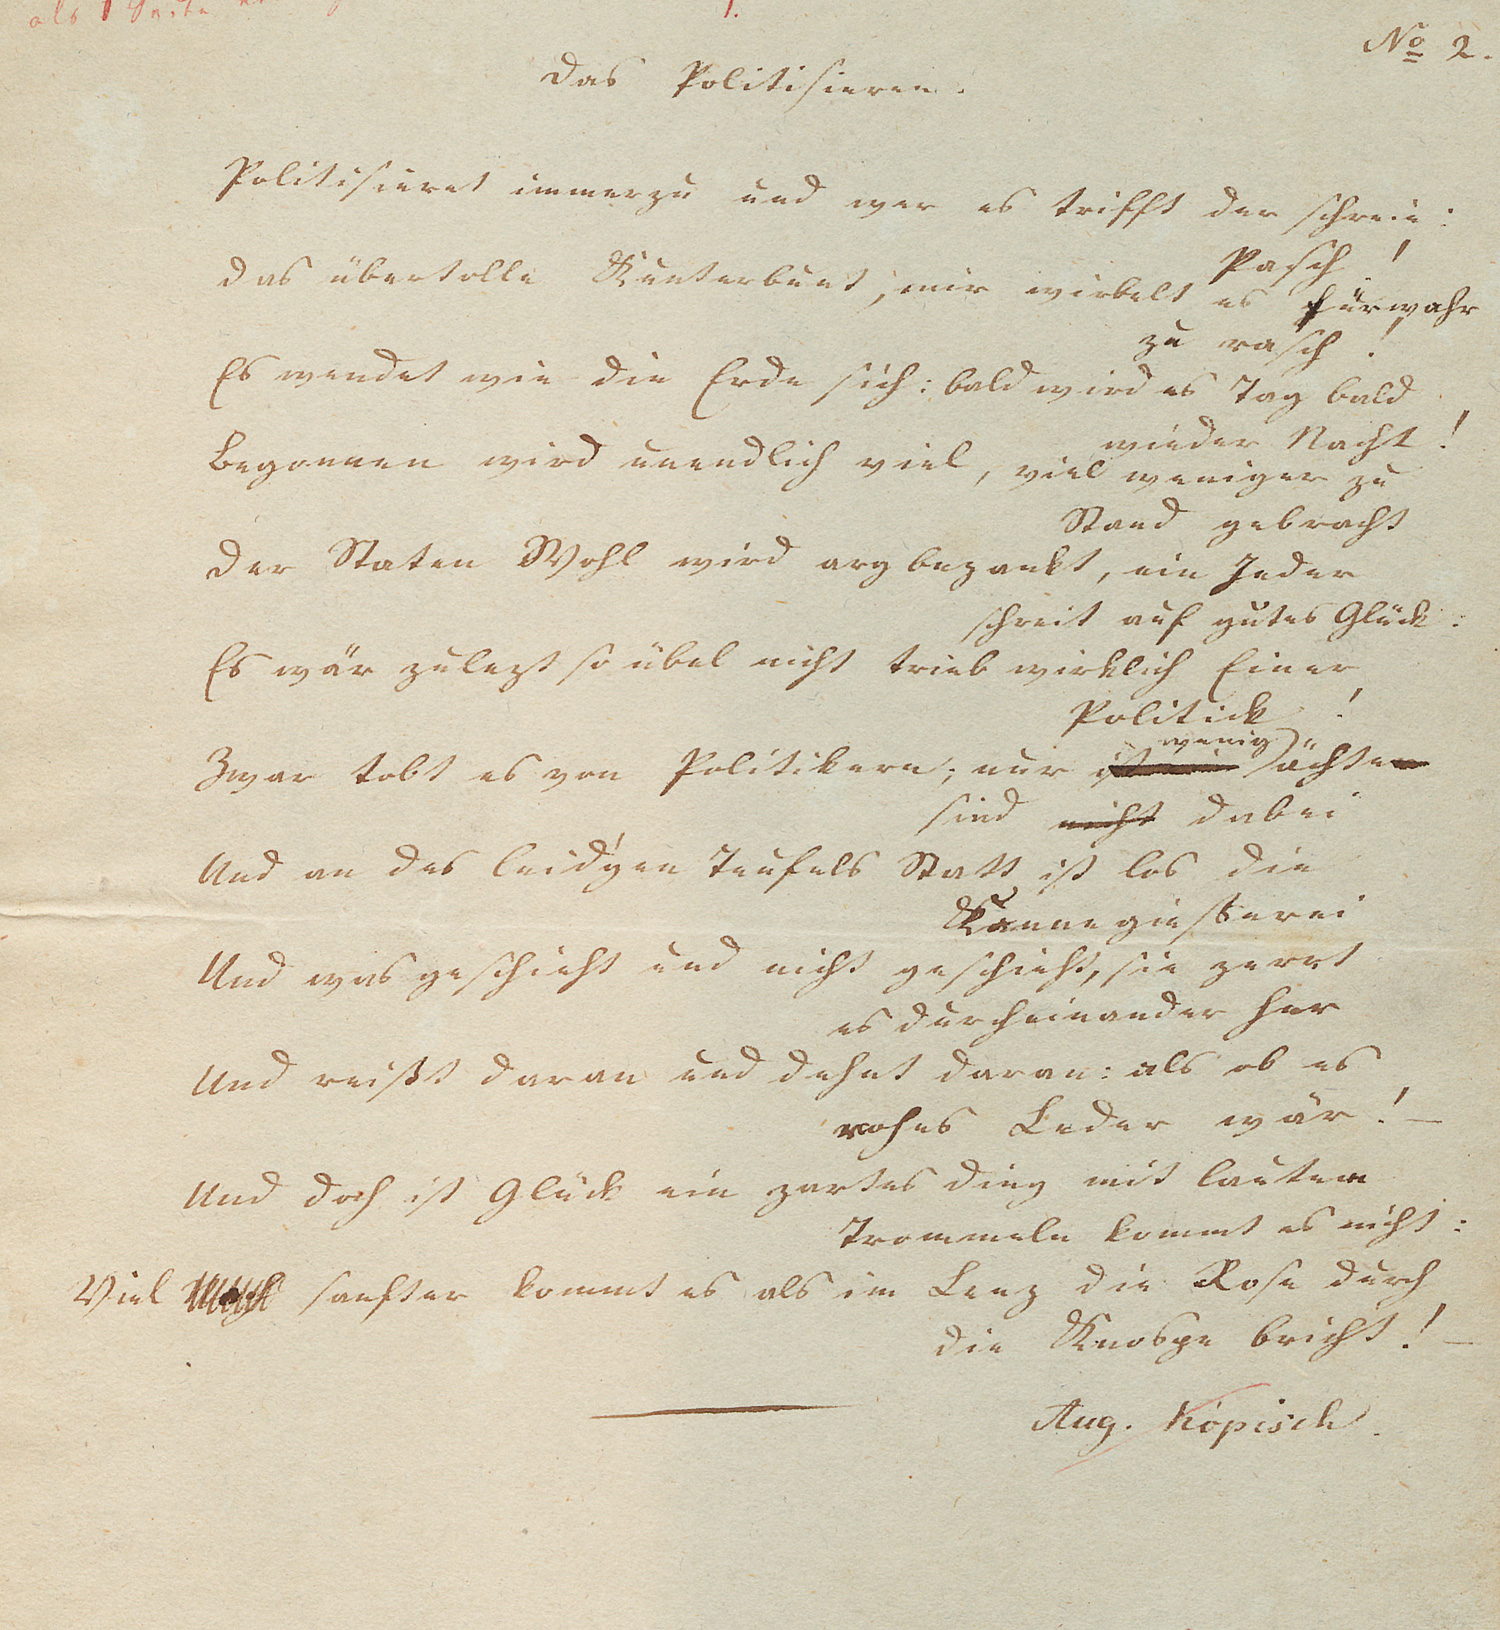 als 1 Seite
1.
No 2.
Das Politisieren.
Politisieret immerzu und wer es trifft der schreie:
Pasch!
Das übertolle Kunterbunt, mir wirbelt es fürwahr
zu rasch!
Es wendet wie die Erde sich: bald wird es Tag bald
wieder Nacht!
Begonnen wird unendlich viel, viel weniger zu
Stand gebracht
Der Staten Wohl wird arg bezankt, ein Jeder
schreit auf gutes Glück:
Es wär zulezt so übel nicht trieb wirklich Einer
Politick!
wenig
Zwar tobt es von Politikern; nur ächte
sind nicht dabei
Und an des leid'gen Teufels Statt ist los die
Kannegießerei
Und was geschieht und nicht geschieht, sie zerrt
es durcheinander her
Und reißt daran und dehnt daran: als ob es
rohes Leder wär! –
Und doch ist Glück ein zartes Ding mit lautem
Trommeln kommt es nicht:
Viel sanfter kommt es als im Lenz die Rose durch
die Knospe bricht! –
Aug. Kopisch.